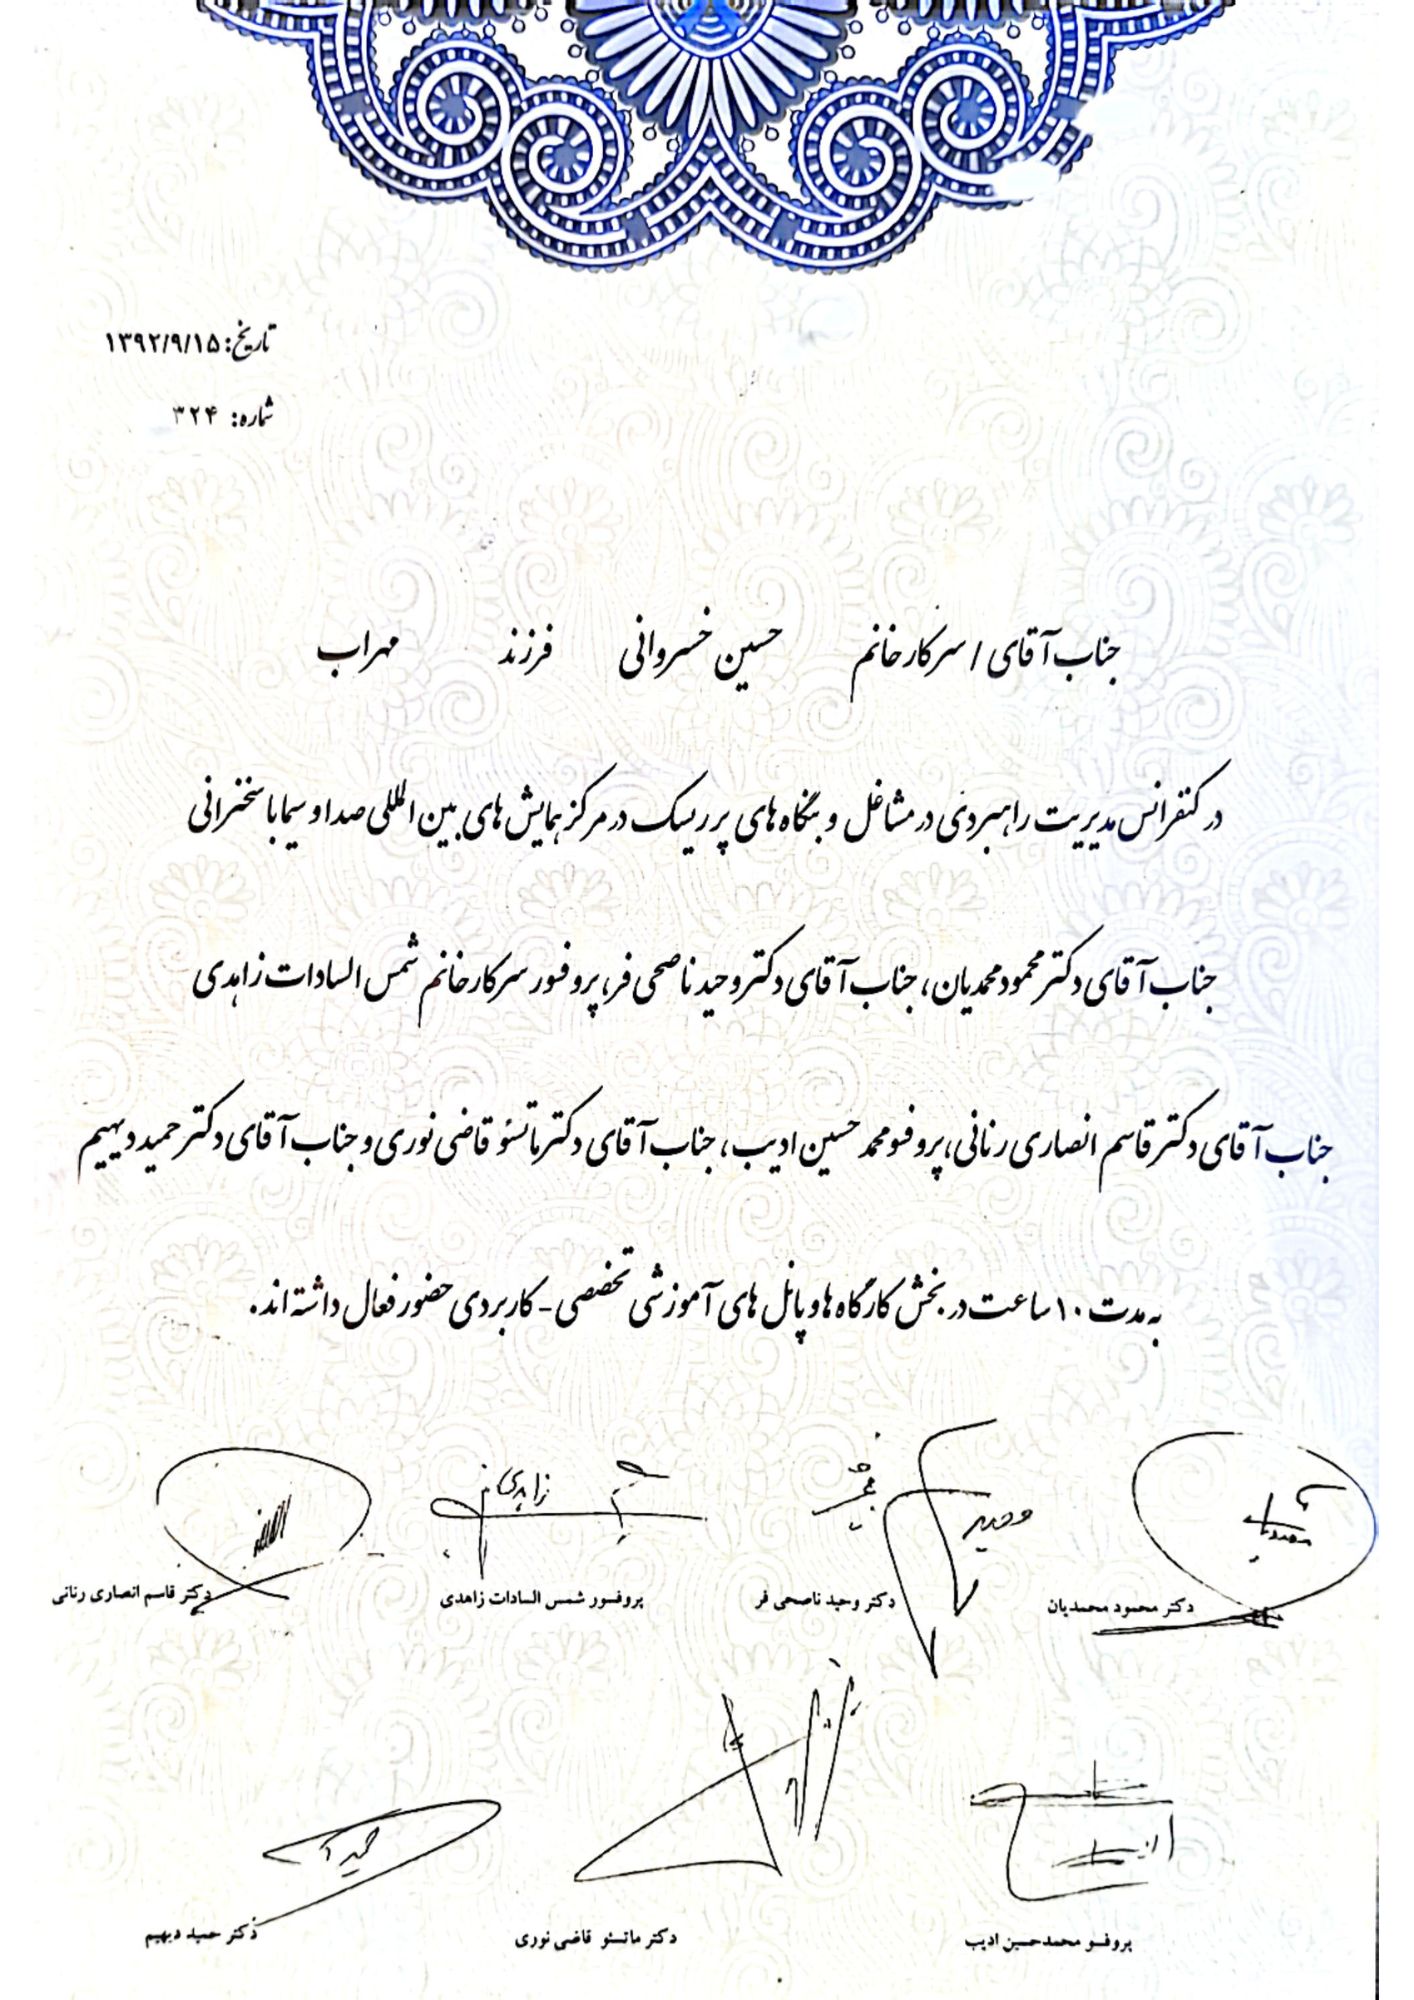 تاریخ: ۱۳۹۲/۹/۱۵
شماره: ۳۲۴
جناب آقای / سرکار خانم حسین خسروانی فرزند مهراب
در کنفرانس مدیریت راهبردی در مشاغل و بنگاه های پر ریسک در مرکز همایش های بین المللی صدا و سیما با سخنرانی
جناب آقای دکتر محمود محمدیان، جناب آقای دکتر وحید ناصحی فر، پروفسور سرکار خانم شمس السادات زاهدی
جناب آقای دکتر قاسم انصاری رنانی، پروفسو محمد حسین ادیب، جناب آقای دکتر ماتئو قاضی نوری و جناب آقای دکتر حمید دیهیم
به مدت ۱۰ ساعت در بخش کارگاه ها و پانل های آموزشی تخصصی - کاربردی حضور فعال داشته اند.
وحید
زاهدی
دکتر محمود محمدیان دکتر وحید ناصحی فر پروفسور شمس السادات زاهدی دکتر قاسم انصاری رنانی
حمید
پروفسو محمدحسین ادیب دکتر ماتئو قاضی نوری دکتر حمید دیهیم